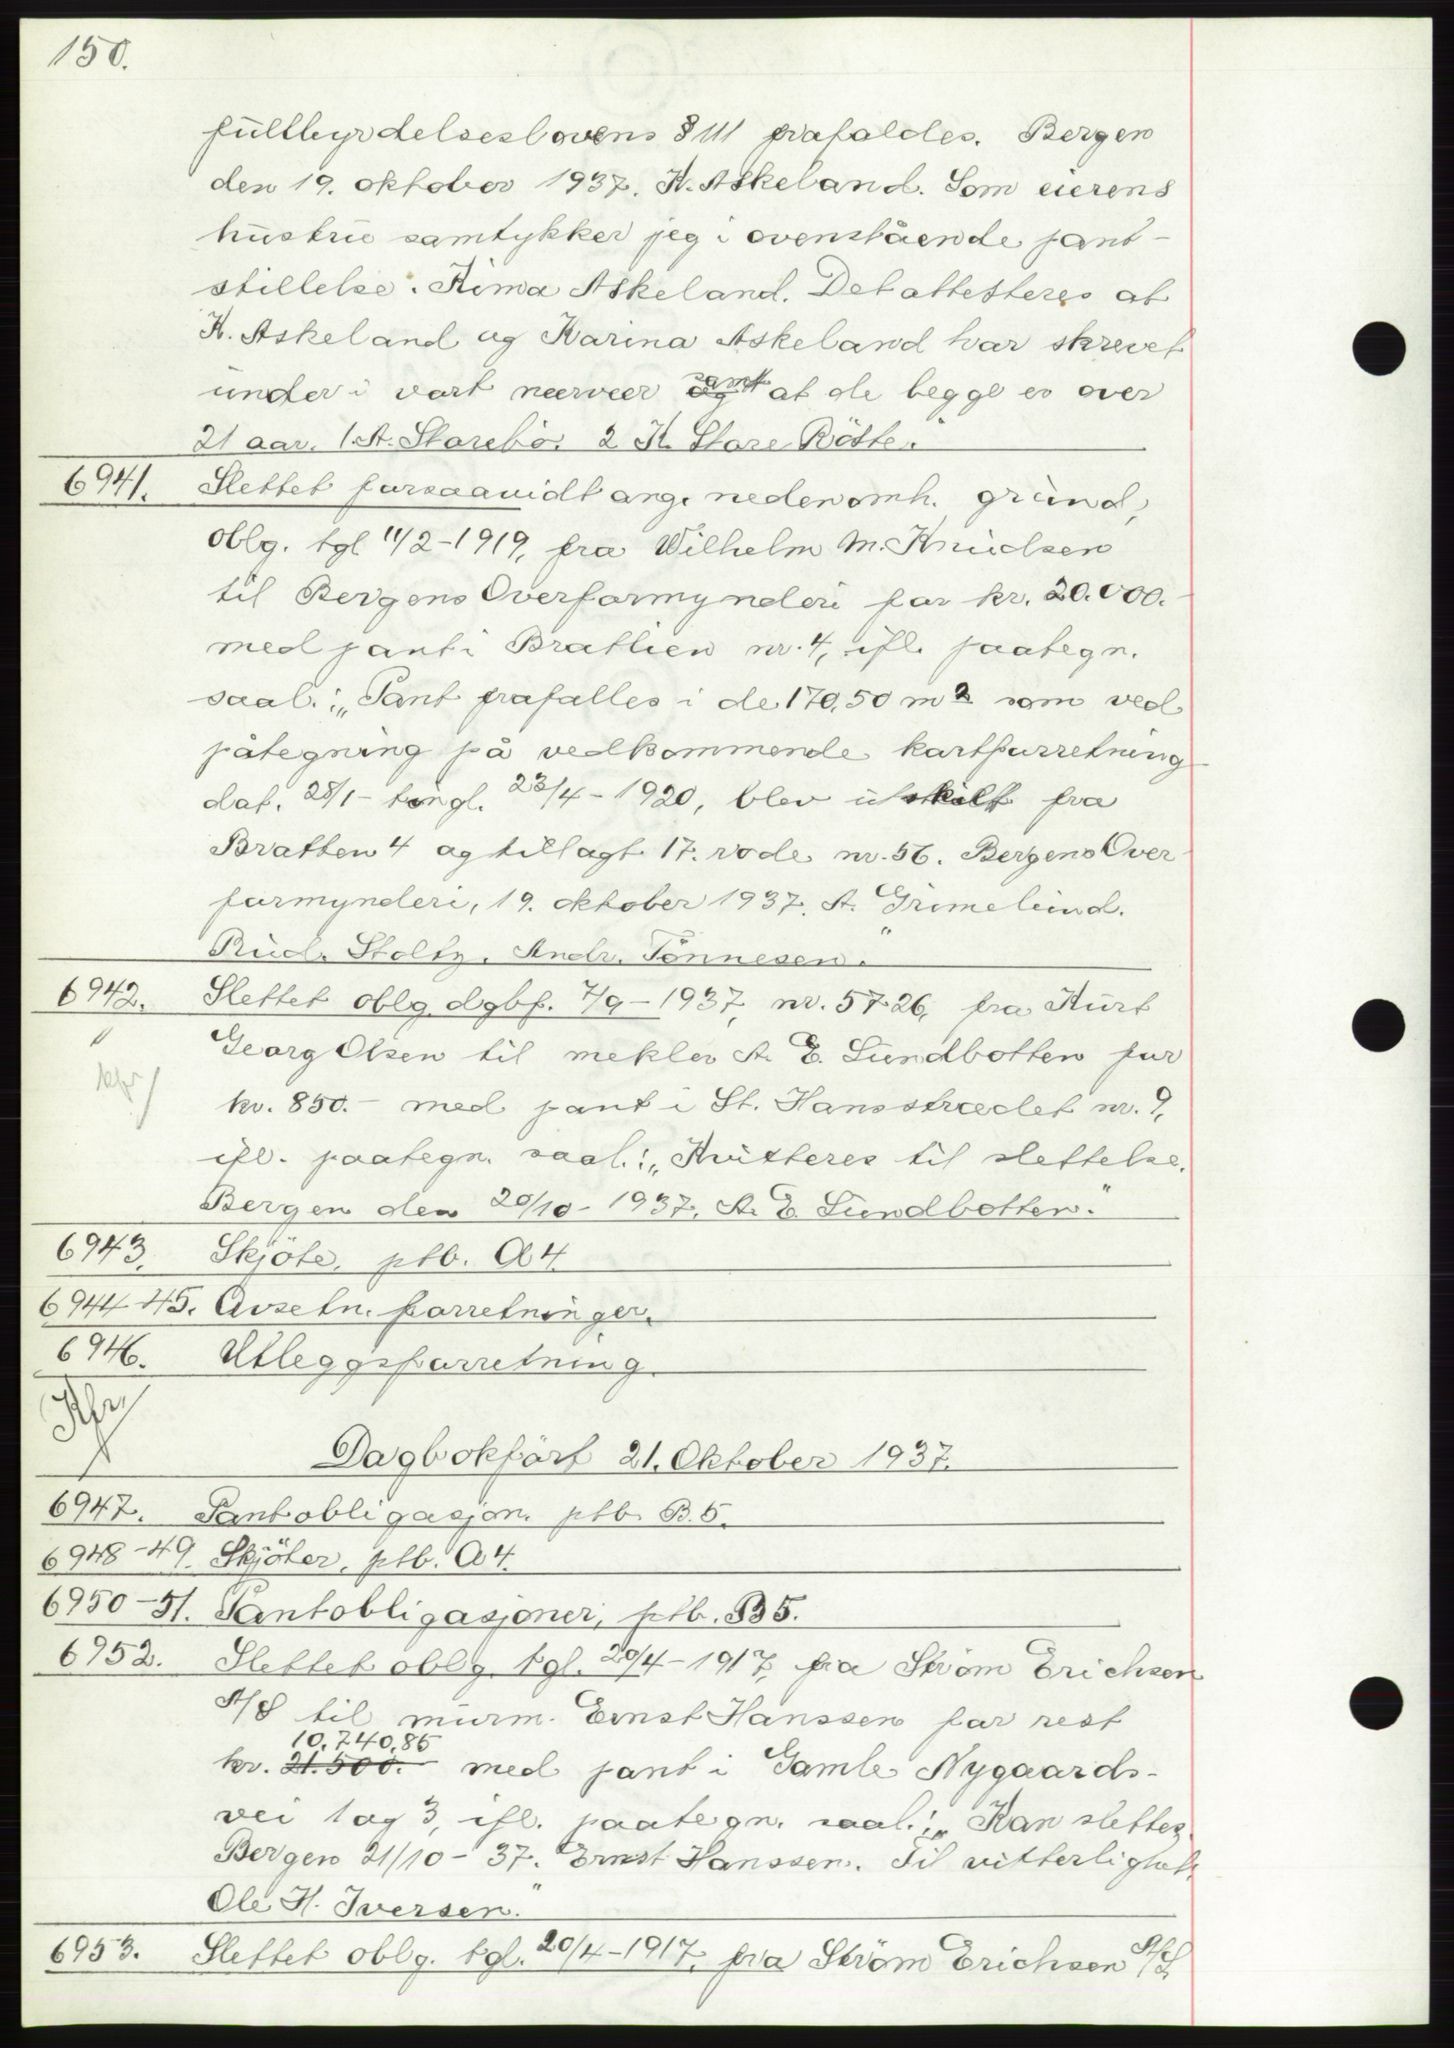 150.
fullbyrdelseslovens § 111 frafaldes. Bergen
den 19. oktober 1937. K. Askeland. Som eierens
hustru samtykker jeg i ovenstående pant-
stillelse. Kima Askeland. Det attesteres at
K. Askeland og Karina Askeland har skrevet
under i vart nærvær og samt at de begge er over
21 aar. 1. A. Storebö. 2 K. Store Bötte."
6941. Slettet forsaavidt ang. nedenomh. grund,
oblg. tgl 11/2-1919, fra Wilhelm M. Knudsen
til Bergens Overformynderi for kr. 20.000.-
med pant i Bratlien nr. 4, ifl. paategn.
saal.: „Pant frafalles i de 170,50 m2 som ved
påtegning på vedkommende kartforretning
dat. 28/1- tingl. 23/4-1920, blev utskilt fra
Bratten 4 og tillagt 17. rode nr. 56. Bergens Over-
formynderi, 19. oktober 1937. A. Grimelund.
Rud. Stoltz. Andr. Tönnesen."
6942. Slettet oblg. dgbf. 7/9-1937, nr. 5726, fra Kurt
Georg Olsen til mekler A. E. Sundbotten for
kr. 850.- med pant i St. Hansstrædet nr. 9,
ifl. paategn. saal.: „Kvitteres til slettelse.
Bergen den 20/10-1937. A. E. Sundbotten."
6943. Skjöte, ptb. A4.
6944-45. Avsetn. forretninger.
6946. Utleggsforretning.
Dagbokfört 21. Oktober 1937.
6947. Pantobligasjon. ptb. B.5.
6948-49. Skjöter, ptb. A4.
6950-51. Pantobligasjoner, ptb. B5.
6952. Slettet oblg. tgl. 20/4-1917, fra Ström Erichsen
A/S til murm. Ernst Hanssen for rest
10.740,85
kr. 21.500.- med pant i Gamle Nygaards-
vei 1 og 3, ifl. paategn. saal.: „Kan slettes.
Bergen 21/10-37. Ernst Hanssen. Til vitterlighet,
Ole H. Iversen."
6953. Slettet oblg. tgl. 20/4-1917, fra Ström Erichsen A/S